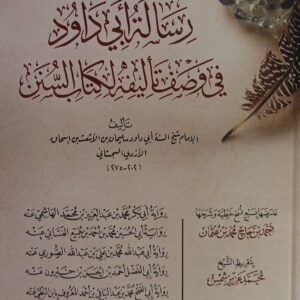 رسالة أبي داود
في وصف تأليفه لكتاب السنن
تأليف
الإمام شيخ السنة أبي داود سليمان بن الأشعث بن إسحاق
الأزدي السجستاني
(٢٠٢-٢٧٥)
رواية أبي بكر محمد بن عبد العزيز بن محمد الهاشمي عنه
رواية أبي الحسين محمد بن أحمد بن جميع الغساني عنه
رواية أبي عبد الله محمد بن علي بن عبد الله الصوري عنه
رواية أبي الفضل أحمد بن الحسن بن خيرون عنه
رواية أبي الفتح محمد بن عبد الباقي بن أحمد المعروف بابن البطي عنه
نسخ خطية
أحمد بن حاج محمد بن عثمان
بتقريظ الشيخ
محمد عزير شمس